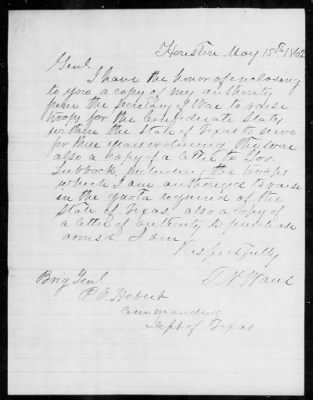 Houston May 15th 1862
Genl.
I have the honor of enclosing
to you a copy of my authority
from the Secretary of War to raise
troops for the Confederate States
within the State of Texas to serve
for three years or during the war
also a copy of a letter to Gov.
Lubbock, including the troops
which I am authorized to raise
in the quota required of the
State of Texas. also a copy of
a letter of authority to purchase
arms & I am
Respectfully
Brig Genl.
P O Hebert
Commanding
Dept of Texas